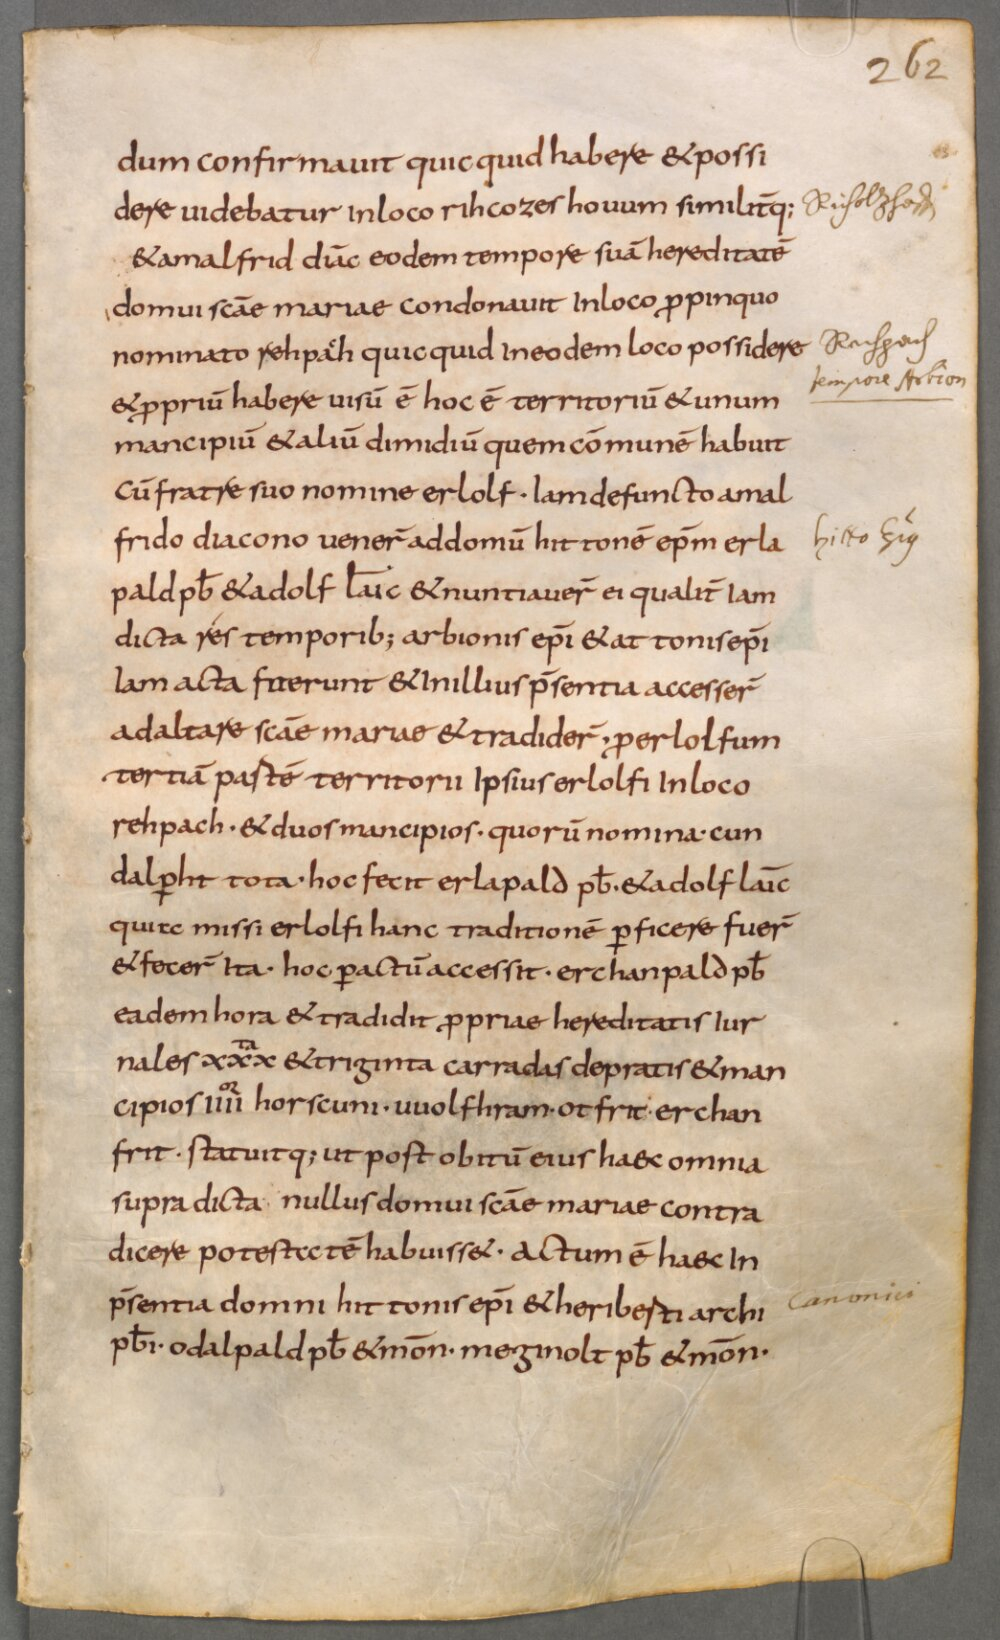 262
dum confirmauit quicquid habere & possi
dere uidebatur in loco rihcozes houum similit̄q;
& amalfrid diac̄ eodem tempore suā hereditatē
domui sc̄ae mariae condonauit In loco ꝓpinquo
nominato rehpah quicquid In eodem loco possidere
& ꝓpriū habere uisū ē hoc ē territoriū & unum
tempore Arbion
mancipiū & aliū dimidiū quem cōmunē habuit
cū fratre suo nomine erlolf · Iam defuncto amal
frido diacono uener̄ ad domū hittonē ep̄m erla
hitto
pald pb̄ & adolf laic̄ & nuntiauer̄ ei qualit̄ Iam
dicta res temporib; arbionis ep̄i & attonis ep̄i
Iam acta fuerunt & In illius p̄sentia accesser̄
ad altare sc̄ae mariae & tradider̄ · ꝓ erlolfum
tertiā partē territorii Ipsius erlolfi In loco
rehpach · & duos mancipios · quorū nomina · cun
dalꝑht tota · hoc fecit erlapald pb̄ · & adolf laic̄
quite missi erlolfi hanc traditionē ꝑficere fuer̄
& fecer̄ Ita · hoc ꝑactū accessit · erchanpald pb̄
eadem hora & tradidit ꝓpriae hereditatis Iur
nales xxx ta & triginta carradas de pratis & man
cipios IIII or horscuni · uuolfhram · otfrit · erchan
frit · statuitq; ut post obitū eius haec omnia
supra dicta nullus domui sc̄ae mariae contra
dicere potestatē habuiss& · Actum ē haec In
p̄sentia domni hittonis ep̄i & heriberti archi
Canonici
pb̄i · odalpald pb̄ & mōn · meginolt pb̄ & mōn ·